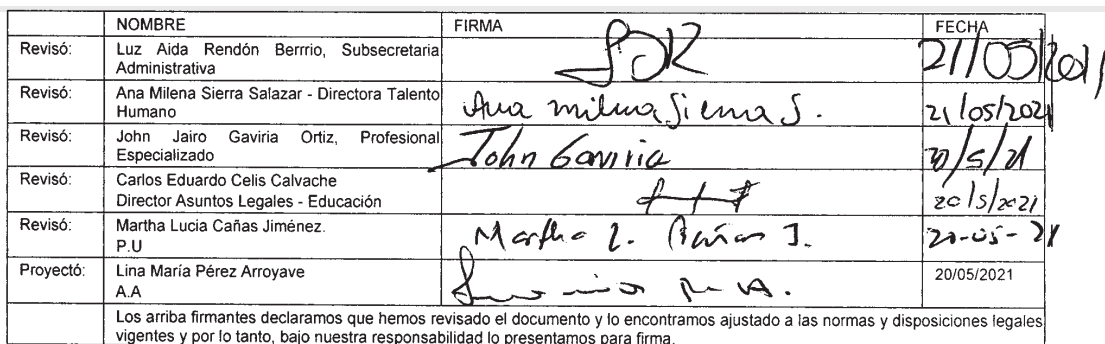 NOMBRE FIRMA FECHA
Revisó: Luz Aida Rendón Berrrio, Subsecretaria
Administrativa 21/05/2021
Revisó: Ana Milena Sierra Salazar - Directora Talento
Humano Ana milena Sierra S. 21/05/2021
Revisó: John Jairo Gaviria Ortiz, Profesional
Especializado John Gaviria 20/5/21
Revisó: Carlos Eduardo Celis Calvache
Director Asuntos Legales - Educación 20/5/2021
Revisó: Martha Lucia Cañas Jiménez.
P.U Martha L. Cañas J. 20-05-21
Proyectó: Lina María Pérez Arroyave 20/05/2021
A.A
Los arriba firmantes declaramos que hemos revisado el documento y lo encontramos ajustado a las normas y disposiciones legales
vigentes y por lo tanto, bajo nuestra responsabilidad lo presentamos para firma.